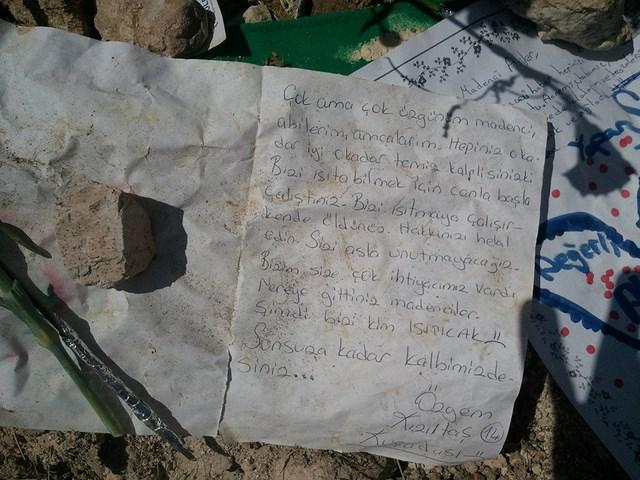 Çok ama çok üzgünüm madenci
abilerim, amcalarım. Hepiniz oka-
dar iyi okadar temiz kalplisinizki.
Bizi ısıtabilmek için canla başla
çalıştınız. Bizi ısıtmaya çalışır-
kende öldünüz. Hakkınızı helal
edin. Sizi asla unutmayacağız.
Bizim size çok ihtiyacımız vardı
Nereye gittiniz madenciler.
Şimdi bizi kim ISITICAK!!
Sonsuza kadar kalbimizde-
siniz...
Özgem
Kızıltaş 14
Kuşadası
Madenci
Değerli